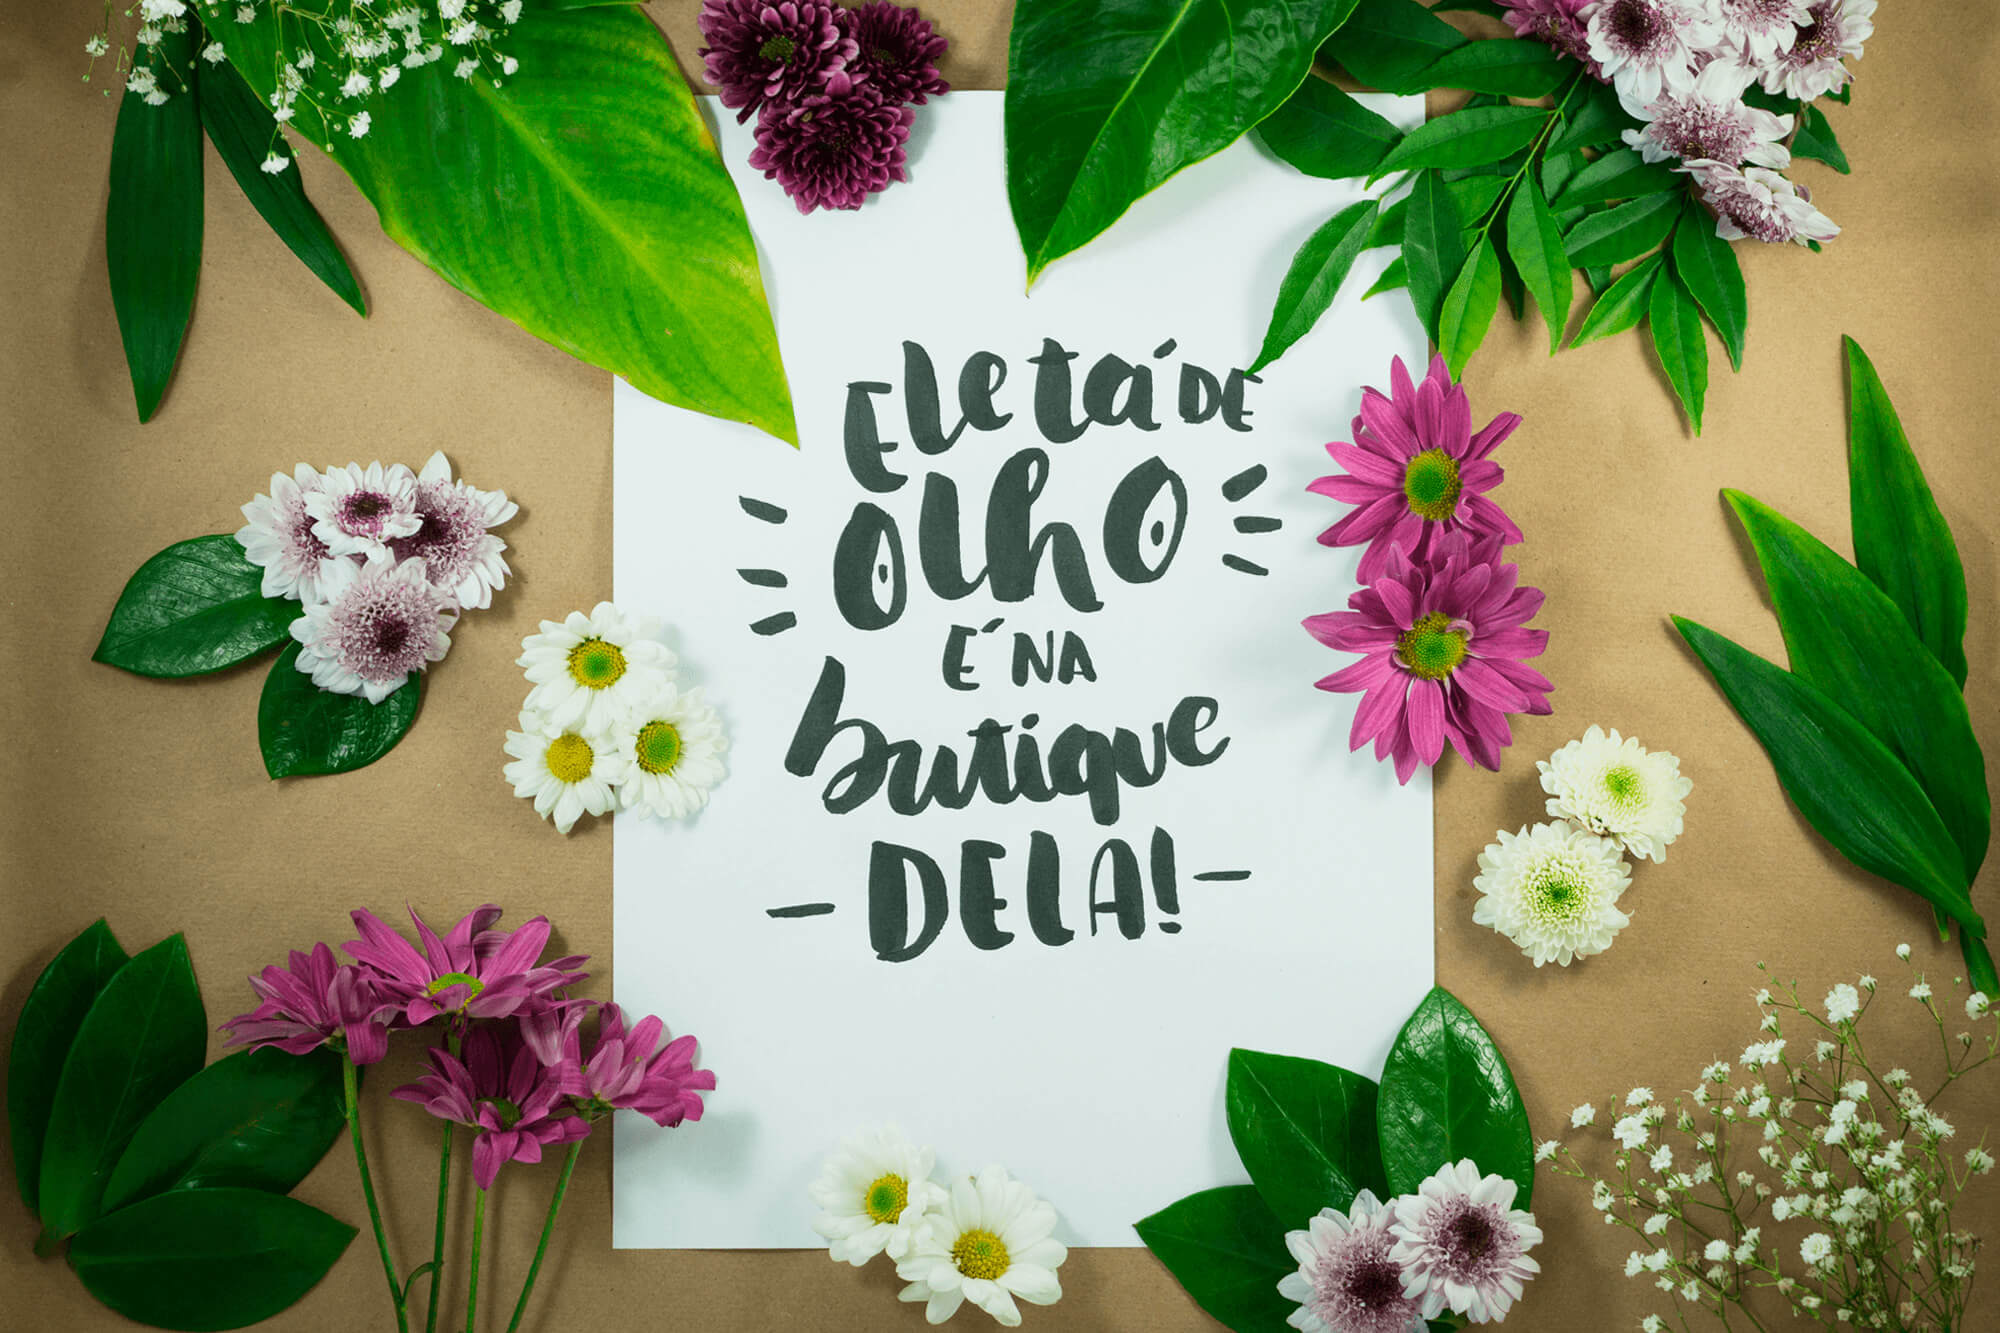 Ele tá DE
OlhO
É NA
butique
- DELA! -